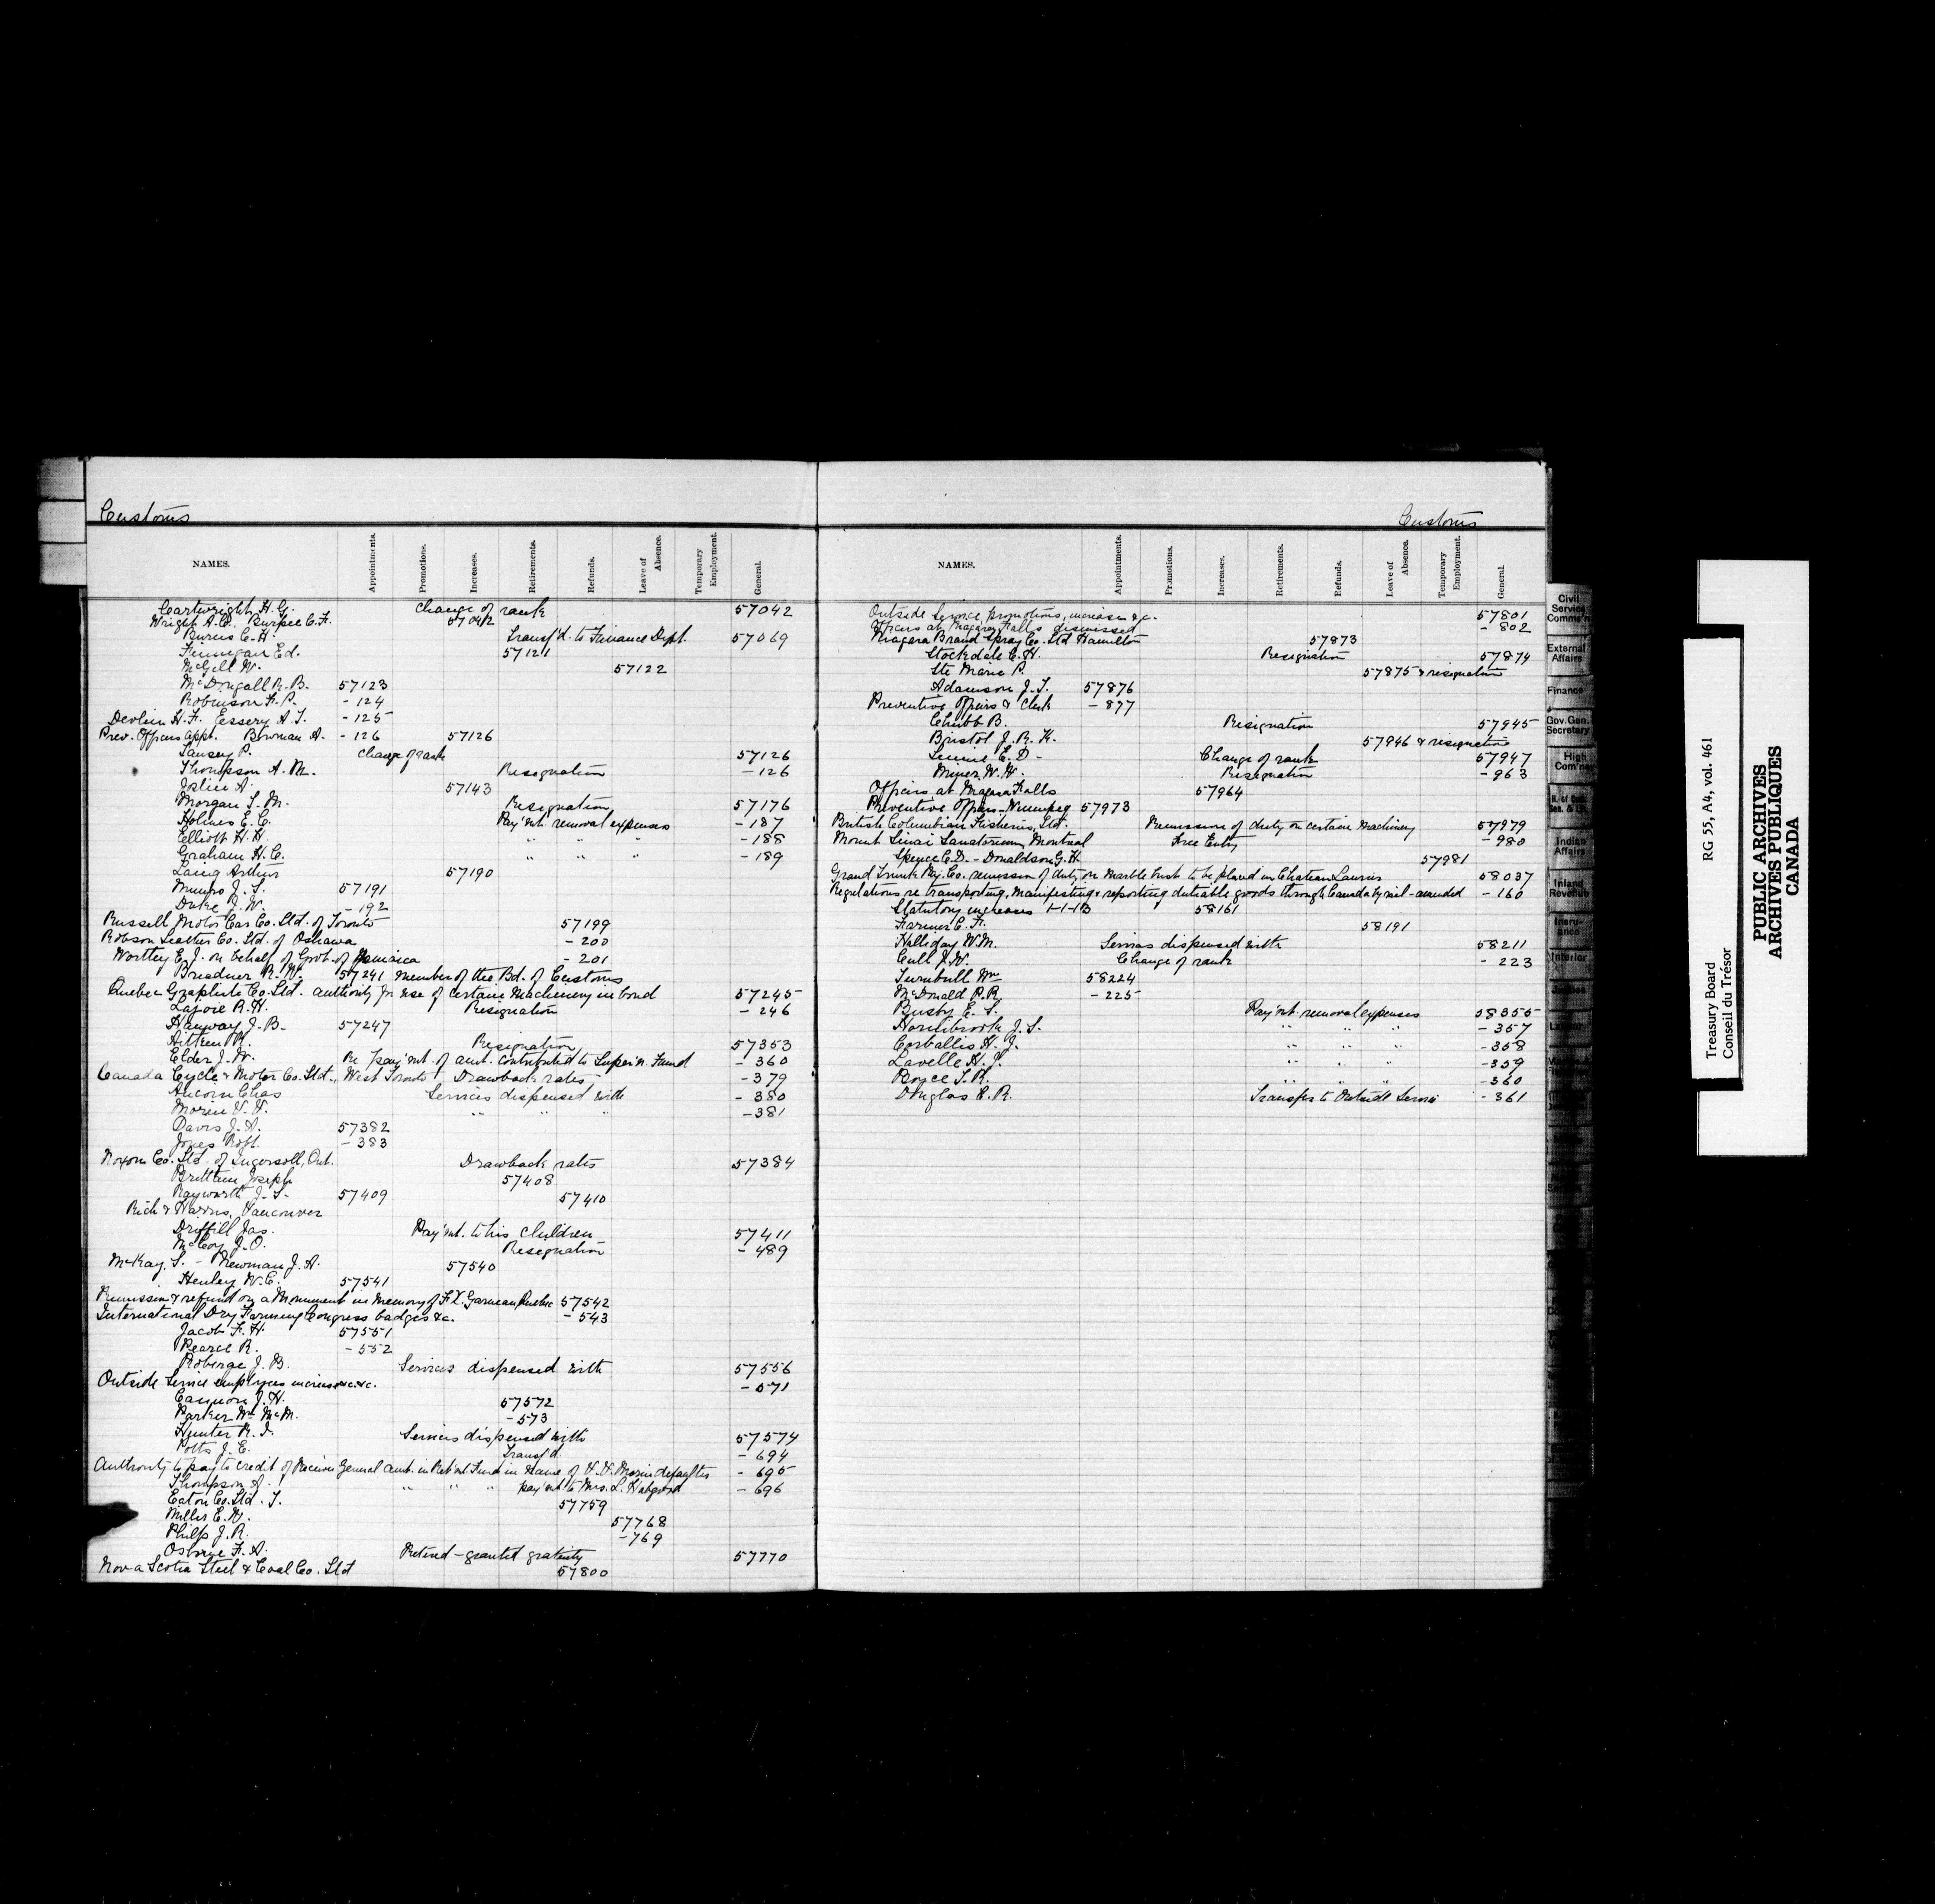 Customs
NAMES. Appointments. Promotions. Increases. Retirements. Refunds. Leave of Absence. Temporary Employment. General.
Cartwright H. G. Change of rank 57042
Wright A. C. Burpee C. F. 57042
Burns C. H. Transf'd. to Finance Dept. 57069
Finnegan Ed. 57121
McGill W. 57122
McDougall R. B. 57123
Robinson F. P. - 124
Devlin H. F. Jessery A. J. - 125
Prev. Officers appt. Bowman A. - 126 57126
Lansey P. Change of rank 57126
Thompson A. M. Resignation - 126
Joslin A. 57143
Morgan S. M. Resignation 57176
Holmes E. C. Pay'mt. removal expenses - 187
Elliott H. H. " " " - 188
Graham H. C. " " " - 189
Laing Arthur 57190
Munro J. S. 57191
Duke J. W. - 192
Russell Motor Car Co. Ltd. of Toronto 57199
Robson Leather Co. Ltd. of Oshawa - 200
Wortley E. J. on behalf of Govt. of Jamaica - 201
Breadner R. W. 57241 Member of the Bd. of Customs
Quebec Graphite Co. Ltd. authority for use of certain machinery in bond 57245
Lajoie R. H. Resignation - 246
Hanway J. B. 57247
Aitken R. Resignation 57353
Elder J. W. Re pay'mt. of amt. contributed to Super'n Fund - 360
Canada Cycle & Motor Co. Ltd., West Toronto Drawback rates - 379
Aucoin Chas Services dispensed with - 380
Morin V. V. " " " - 381
Davis J. A. 57382
Jones Robt. - 383
Noxon Co. Ltd. of Ingersoll, Ont. Drawback rates 57384
Brittain Joseph 57408
Rayworth J. S. 57409 57410
Rich & Harris, Vancouver
Driffill Jas. Pay'mt. to his children 57411
McCoy J. O. Resignation - 489
McKay, S. - Newman J. A. 57540
Henley W. E. 57541
Remission & refund on a Monument in Memory of F. X. Garneau Quebec 57542
International Dry Farming Congress badges &c. - 543
Jacob F. H. 57551
Pearce R. - 552
Roberge J. B. Services dispensed with 57556
Outside Service employees increases &c. &c. - 571
Cannon J. H. 57572
Parker Wm McM. - 573
Hunter R. J. Services dispensed with 57574
Potts J. E. Transf'd. - 694
Authority to pay to credit of Receiver General amt. in Ret'mt Fund in name of V. V. Morin defaulter - 695
Thompson A. " " " pay'mt to Mrs. L. Habgood - 696
Eaton Co. Ltd. T. 57759
Miller E. W. 57768
Philp J. R. - 769
Osborne F. A. Retired - granted gratuity 57770
Nova Scotia Steel & Coal Co. Ltd 57800
Customs
NAMES. Appointments. Promotions. Increases. Retirements. Refunds. Leave of Absence. Temporary Employment. General.
Outside Service, promotions, increases &c. 57801
Officers at Niagara Falls dismissed - 802
Niagara Brand Spray Co. Ltd Hamilton 57873
Stockdale C. H. Resignation 57874
Ste Marie P. 57875 & resignation
Adamson J. T. 57876
Preventive Officers & Clerk - 877
Chubb B. Resignation 57945
Bristol J. R. K. 57946 & resignation
Lennie E. D. Change of rank 57947
Miner W. H. Resignation - 963
Officers at Niagara Falls 57964
Preventive Officers - Winnipeg 57973
British Columbian Fisheries, Ltd. Remission of duty on certain machinery 57979
Mount Sinai Sanatorium, Montreal Free Entry - 980
Spence C. D. - Donaldson G. H. 57981
Grand Trunk Ry. Co. remission of duty on Marble bust to be placed in Chateau Laurier 58037
Regulations re transporting, manifesting & reporting dutiable goods through Canada by rail - amended - 160
Statutory increases 1-1-13 58161
Farmer C. F. 58191
Halliday W. M. Services dispensed with 58211
Cull J. W. Change of rank - 223
Turnbull Wm 58224
McDonald P. R. - 225
Busby E. S. Pay'mt. removal expenses 58355
Hornibrook J. S. " " " - 357
Corballis H. J. " " " - 358
Lavelle H. J. " " " - 359
Boyce T. R. " " " - 360
Douglas R. R. Transfer to Outside Service - 361
Civil Service Comms'n
External Affairs
Finance
Gov. Gen. Secretary
High Com'ner
H. of Com.
Indian Affairs
Inland Revenue
Insurance
Interior
Justice
Treasury Board RG 55, A4, vol. 461
Conseil du Trésor
PUBLIC ARCHIVES
ARCHIVES PUBLIQUES
CANADA